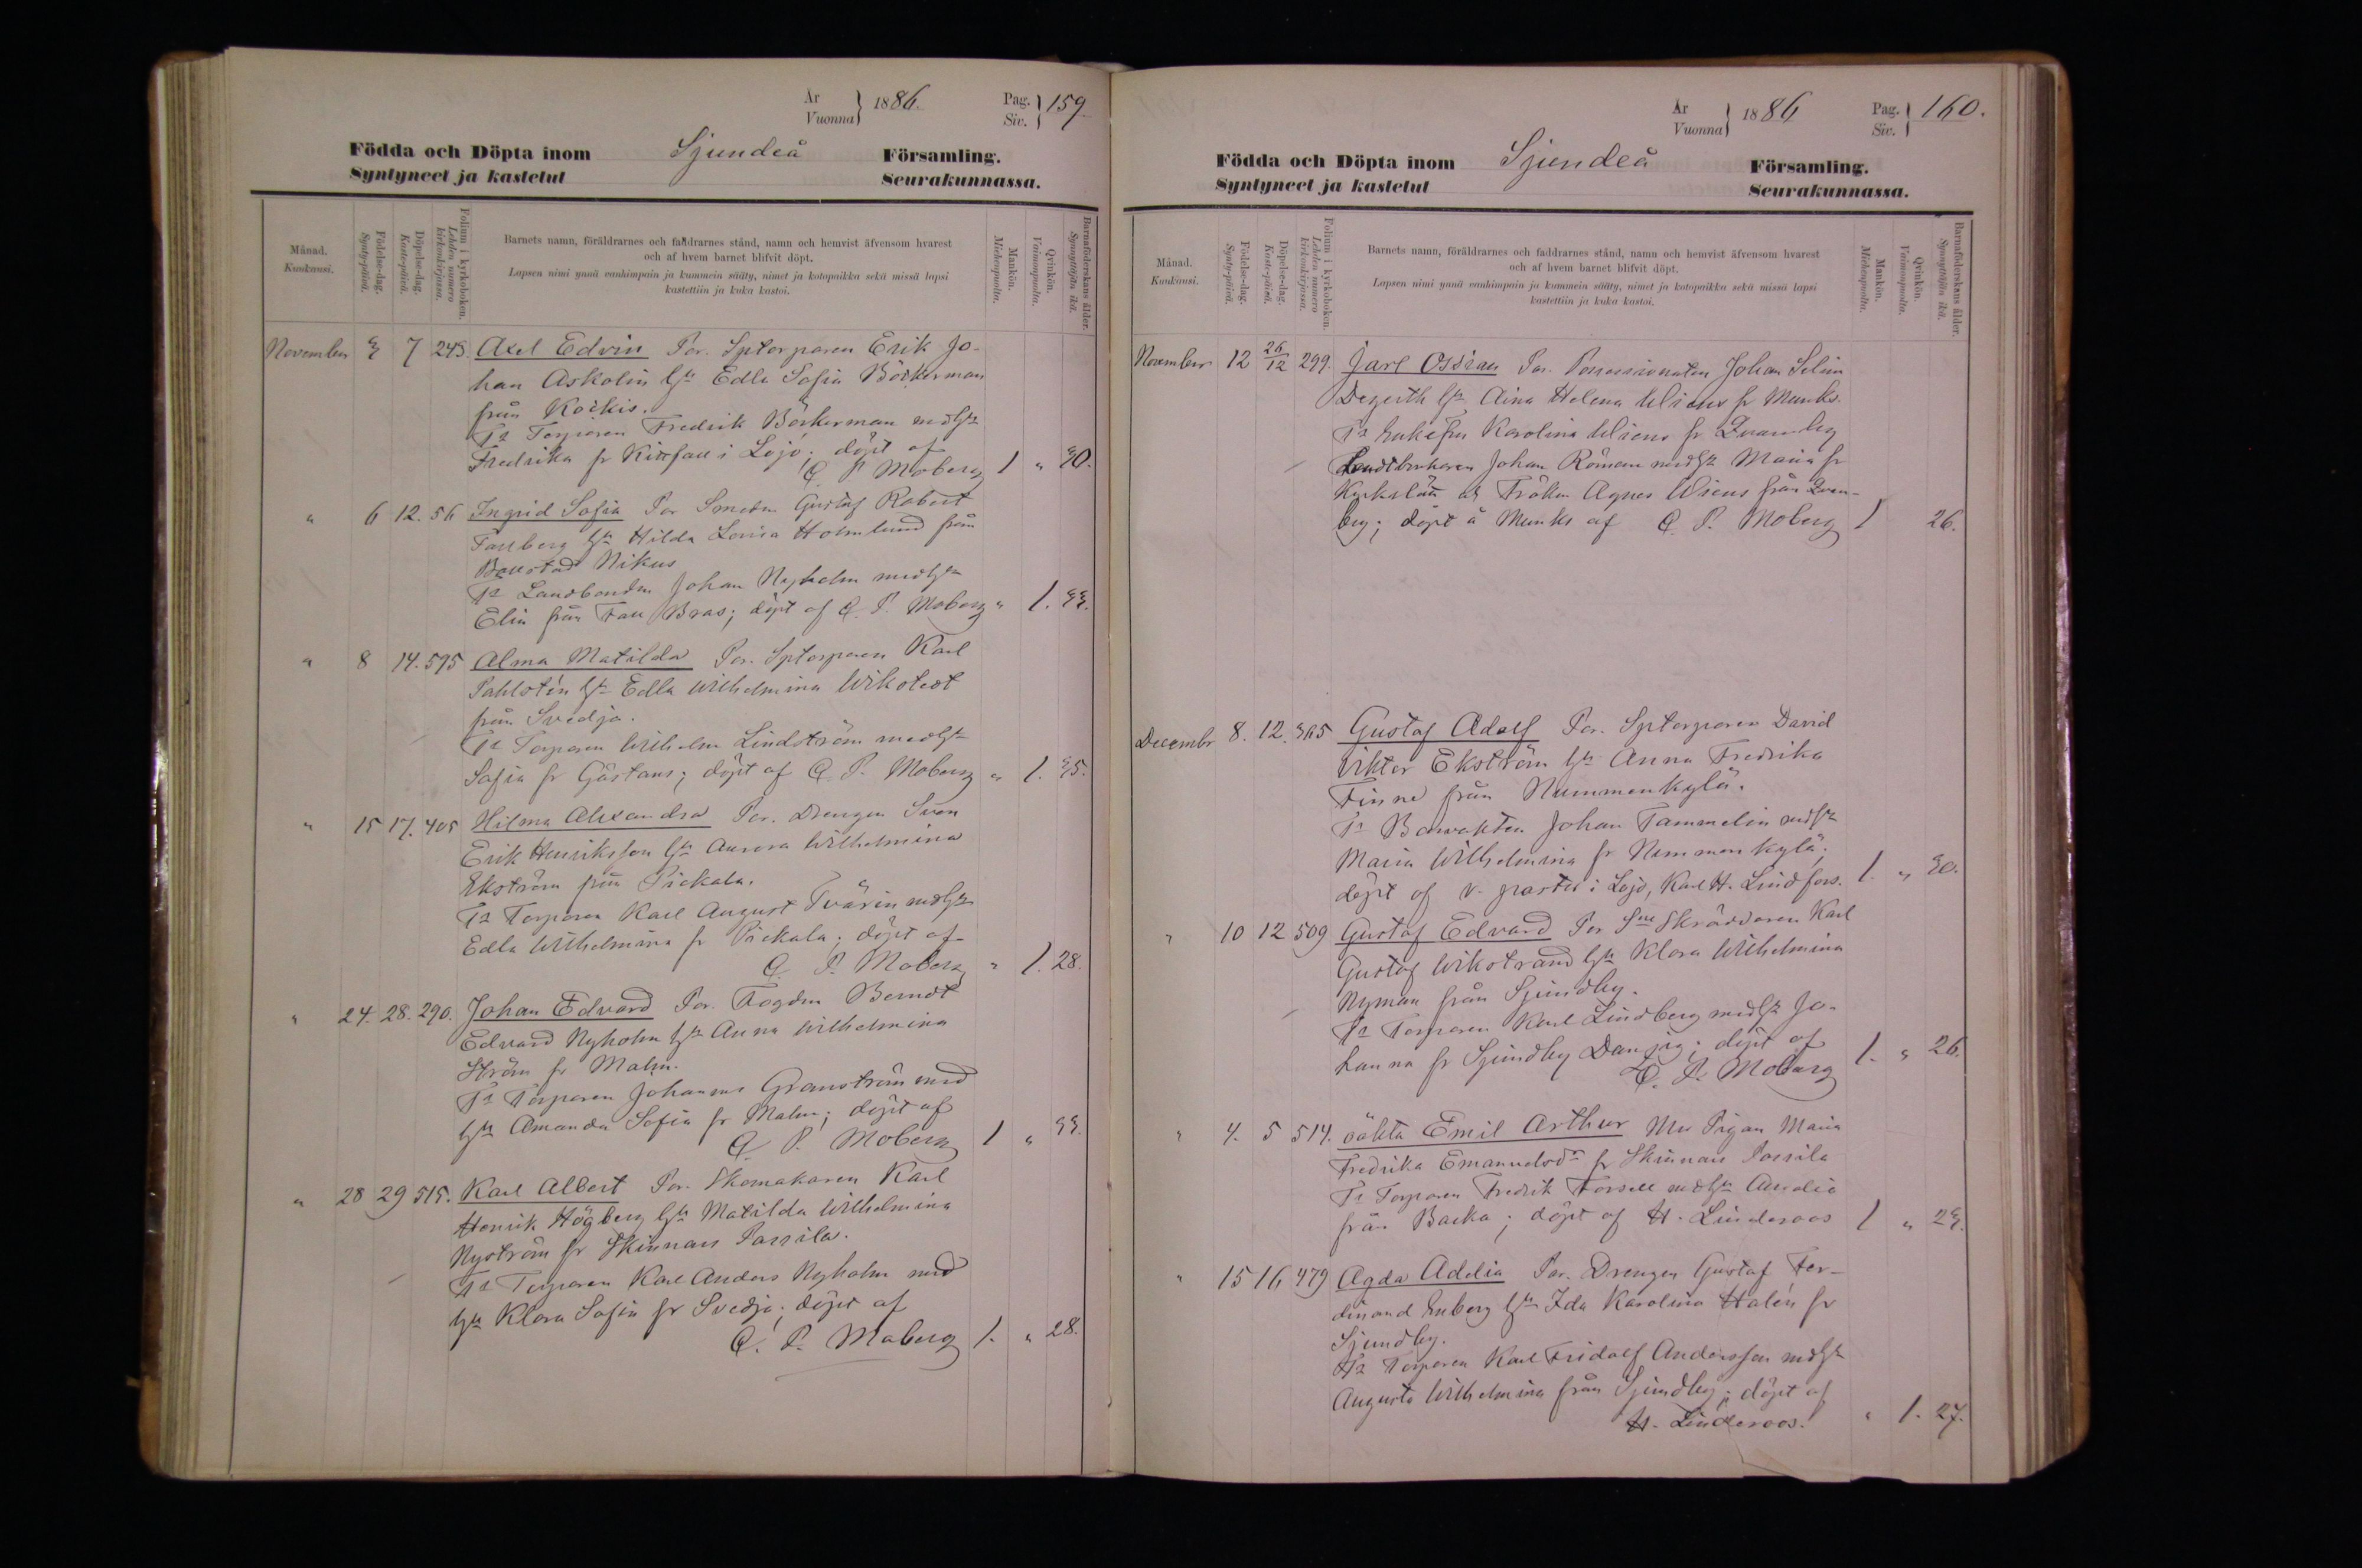 År
Vuonna } 1886. Pag.
Siv. } 159
Födda och Döpta inom Sjundeå Församling.
Syntyneet ja kastetut Seurakunnassa.
Månad.
Kuukausi.
Födelse-dag.
Synty-päivä.
Döpelse-dag.
Kaste-päivä.
Folium i kyrkoboken.
Lehden numero
kirkonkirjassa.
Barnets namn, föräldrarnes och faddrarnes stånd, namn och hemvist äfvensom hvarest
och af hvem barnet blifvit döpt.
Lapsen nimi ynnä vanhimpain ja kummein sääty, nimet ja kotopaikka sekä missä lapsi
kastettiin ja kuka kastoi.
Mankön.
Miehenpuolta.
Qvinkön.
Vaimonpuolta.
Barnaföderskans ålder.
Synnyttäjän ikä.
November 3 7 243. Axel Edvin För. Sptorparen Erik Jo-
han Askolin hu Edla Sofia Böckerman
från Kockis.
Ts Torparen Fredrik Böckerman mdhu
Fredrika fr i Lojo; döpt af
C. P. Moberg 1 " 30.
" 6 12. 56 Ingrid Sofia För Smeden Gustaf Robert
Fallberg hu Hilda Lovisa Holmlund från
Böustad Nikus
Ts Landbonden Johan Nyholm medhu
Elin från Fall Bras; döpt af C. P. Moberg " 1. 33.
" 8 14. 595 Alma Matilda För. Sptorparen Karl
Pahlstén hu Edla Wilhelmina Wikstedt
från Svedja.
Ts Torparen Wilhelm Lindström medhu
Sofia fr Gårstans; döpt af C. P. Moberg " 1. 35.
" 15 17. 405 Hilma Alexandra För. Drengen Sven
Erik Henriksson hu Aurora Wilhelmina
Ekström från Pickala.
Ts Torparen Karl August Tvärin mdhu
Edla Wilhelmina fr Pickala; döpt af
C. P. Moberg " 1. 28.
" 24. 28. 290. Johan Edvard För. Fogden Berndt
Edvard Nyholm hu Anna Wilhelmina
Ström fr Malm.
Ts Torparen Johannes Granström med
hu Amanda Sofia fr Malm; döpt af
C. P. Moberg 1 " 33.
" 28 29 515. Karl Albert För. Skomakaren Karl
Henrik Högberg hu Matilda Wilhelmina
Nyström fr Skinnars Passila.
Ts Torparen Karl Anders Nyholm med
hu Klara Sofia fr Svedja; döpt af
C. P. Moberg 1. " 28.
År
Vuonna } 1886 Pag.
Siv. } 160.
Födda och Döpta inom Sjundeå Församling.
Syntyneet ja kastetut Seurakunnassa.
Månad.
Kuukausi.
Födelse-dag.
Synty-päivä.
Döpelse-dag.
Kaste-päivä.
Folium i kyrkoboken.
Lehden numero
kirkonkirjassa.
Barnets namn, föräldrarnes och faddrarnes stånd, namn och hemvist äfvensom hvarest
och af hvem barnet blifvit döpt.
Lapsen nimi ynnä vanhimpain ja kummein sääty, nimet ja kotopaikka sekä missä lapsi
kastettiin ja kuka kastoi.
Mankön.
Miehenpuolta.
Qvinkön.
Vaimonpuolta.
Barnaföderskans ålder.
Synnyttäjän ikä.
November 12 26/12 299. Jarl Ossian För. Possessionaten Johan Selim
Degerth hu Aina Helena Uliens fr Munks.
Ts Enkefru Karolina Uliens fr
Landtbrukaren Johan Roman medhu Maria fr
Kyrkslätt o Fröken Agnes Uliens från
berg; döpt å Munks af C. P. Moberg 1 26.
Decembr 8. 12. 365 Gustaf Adolf För. Sptorparen David
Viktor Ekström hu Anna Fredrika
Finne från Nummenkylä.
Ts Banvakten Johan Tammelin mdhu
Maria Wilhelmina fr Nummenkylä;
döpt af v. pastor i Lojo, Karl H. Lindfors. 1. " 30.
" 10 12 509 Gustaf Edvard För Sne Skräddaren Karl
Gustaf Wikstrand hu Klara Wilhelmina
Nyman från Sjundby.
Ts Torparen Karl Lindberg mdhu Jo-
hanna fr Sjundby Danzig; döpt af
C. P. Moberg 1. " 26.
" 4. 5 514. oäkta Emil Arthur Mor Pigan Maria
Fredrika Emanuelsdr fr Skinnars Passila
Ts Torparen Fredrik Forsell mdhu Amalia
från Backa; döpt af H. Linderoos 1 " 23.
" 15 16 479 Agda Adelia För. Drengen Gustaf Fer-
dinand Enberg hu Ida Karolina Halén fr
Sjundby.
Ts Torparen Karl Fridolf Andersson mdhu
Augusta Wilhelmina från Sjundby; döpt af
H. Linderoos. " 1. 27.